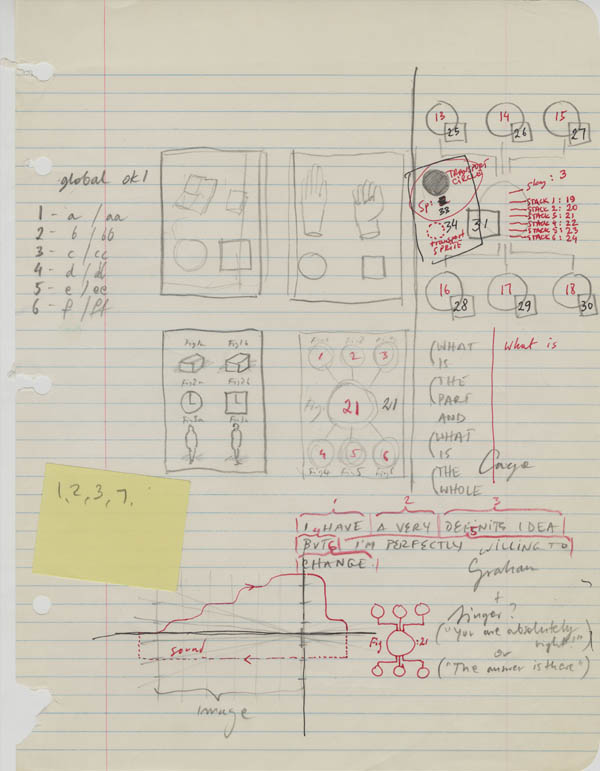 global ok1
1 - a / aa
2 - b / bb
3 - c / cc
4 - d / dd
5 - e / ee
6 - f / ff
13
14
15
25
26
27
TRANSPORT
CIRCLE
Sp:
33
:34
TRANSPORT
SPRITE
31
: 3
STACK 1 : 19
STACK 2 : 20
STACK 3 : 21
STACK 4 : 22
STACK 5 : 23
STACK 6 : 24
16
17
18
28
29
30
Fig1a
Fig1b
Fig2a
Fig2b
Fig3a
1
2
3
Fig
21
21
4
5
6
Fig4
Fig5
Fig6
(WHAT
IS
(THE
PART
AND
(WHAT
IS
(THE
WHOLE
What is
Cage
1, 2, 3, 7,
1
2
3
I HAVE A VERY DEFINITE IDEA
4
5
BUT I'M PERFECTLY WILLING TO
CHANGE.
Graham
+
Singer?
("You are absolutely
right!")
or
("The answer is there")
Fig
:21
sound
image